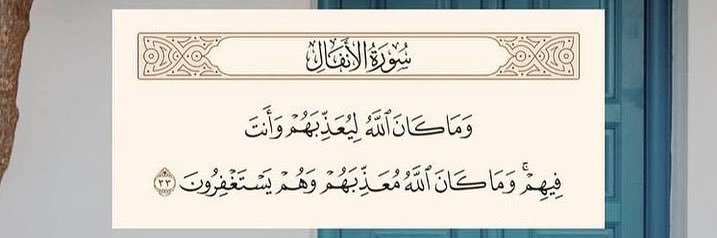 سُورَةُ الأَنفَالِ
وَمَا كَانَ ٱللَّهُ لِيُعَذِّبَهُمۡ وَأَنتَ
فِيهِمۡۚ وَمَا كَانَ ٱللَّهُ مُعَذِّبَهُمۡ وَهُمۡ يَسۡتَغۡفِرُونَ ٣٣